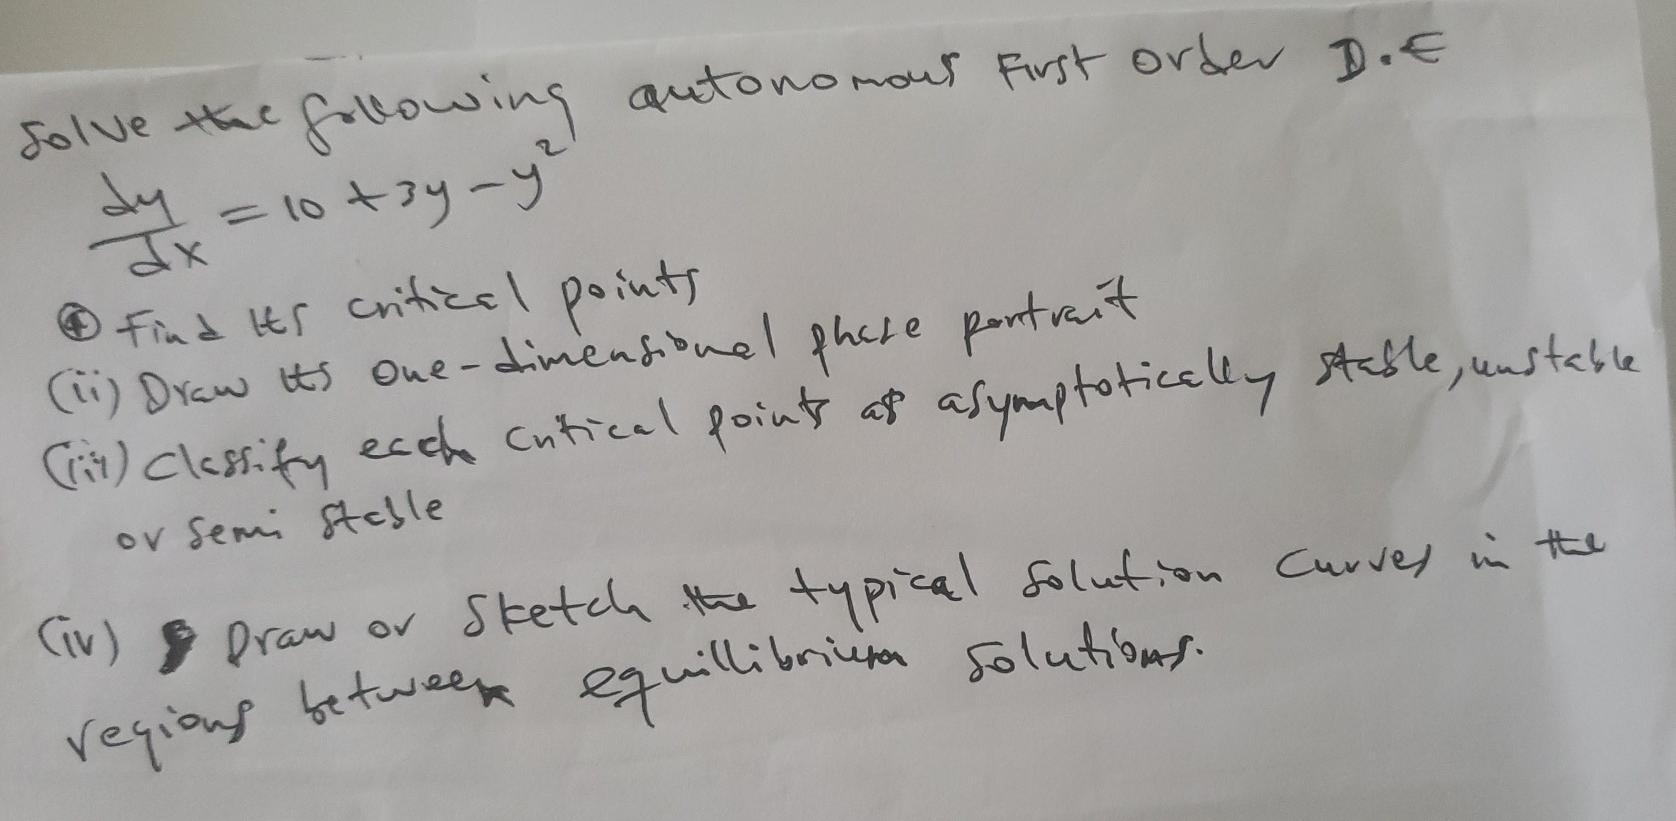 Solve the following autonomous First order D.E
dy/dx = 10 + 3y - y²
(i) Find its critical points
(ii) Draw its one-dimensional phase portrait
(iii) Classify each critical points as asymptotically stable, unstable
or semi stable
(iv) Draw or sketch the typical solution curves in the
regions between equillibrium solutions.